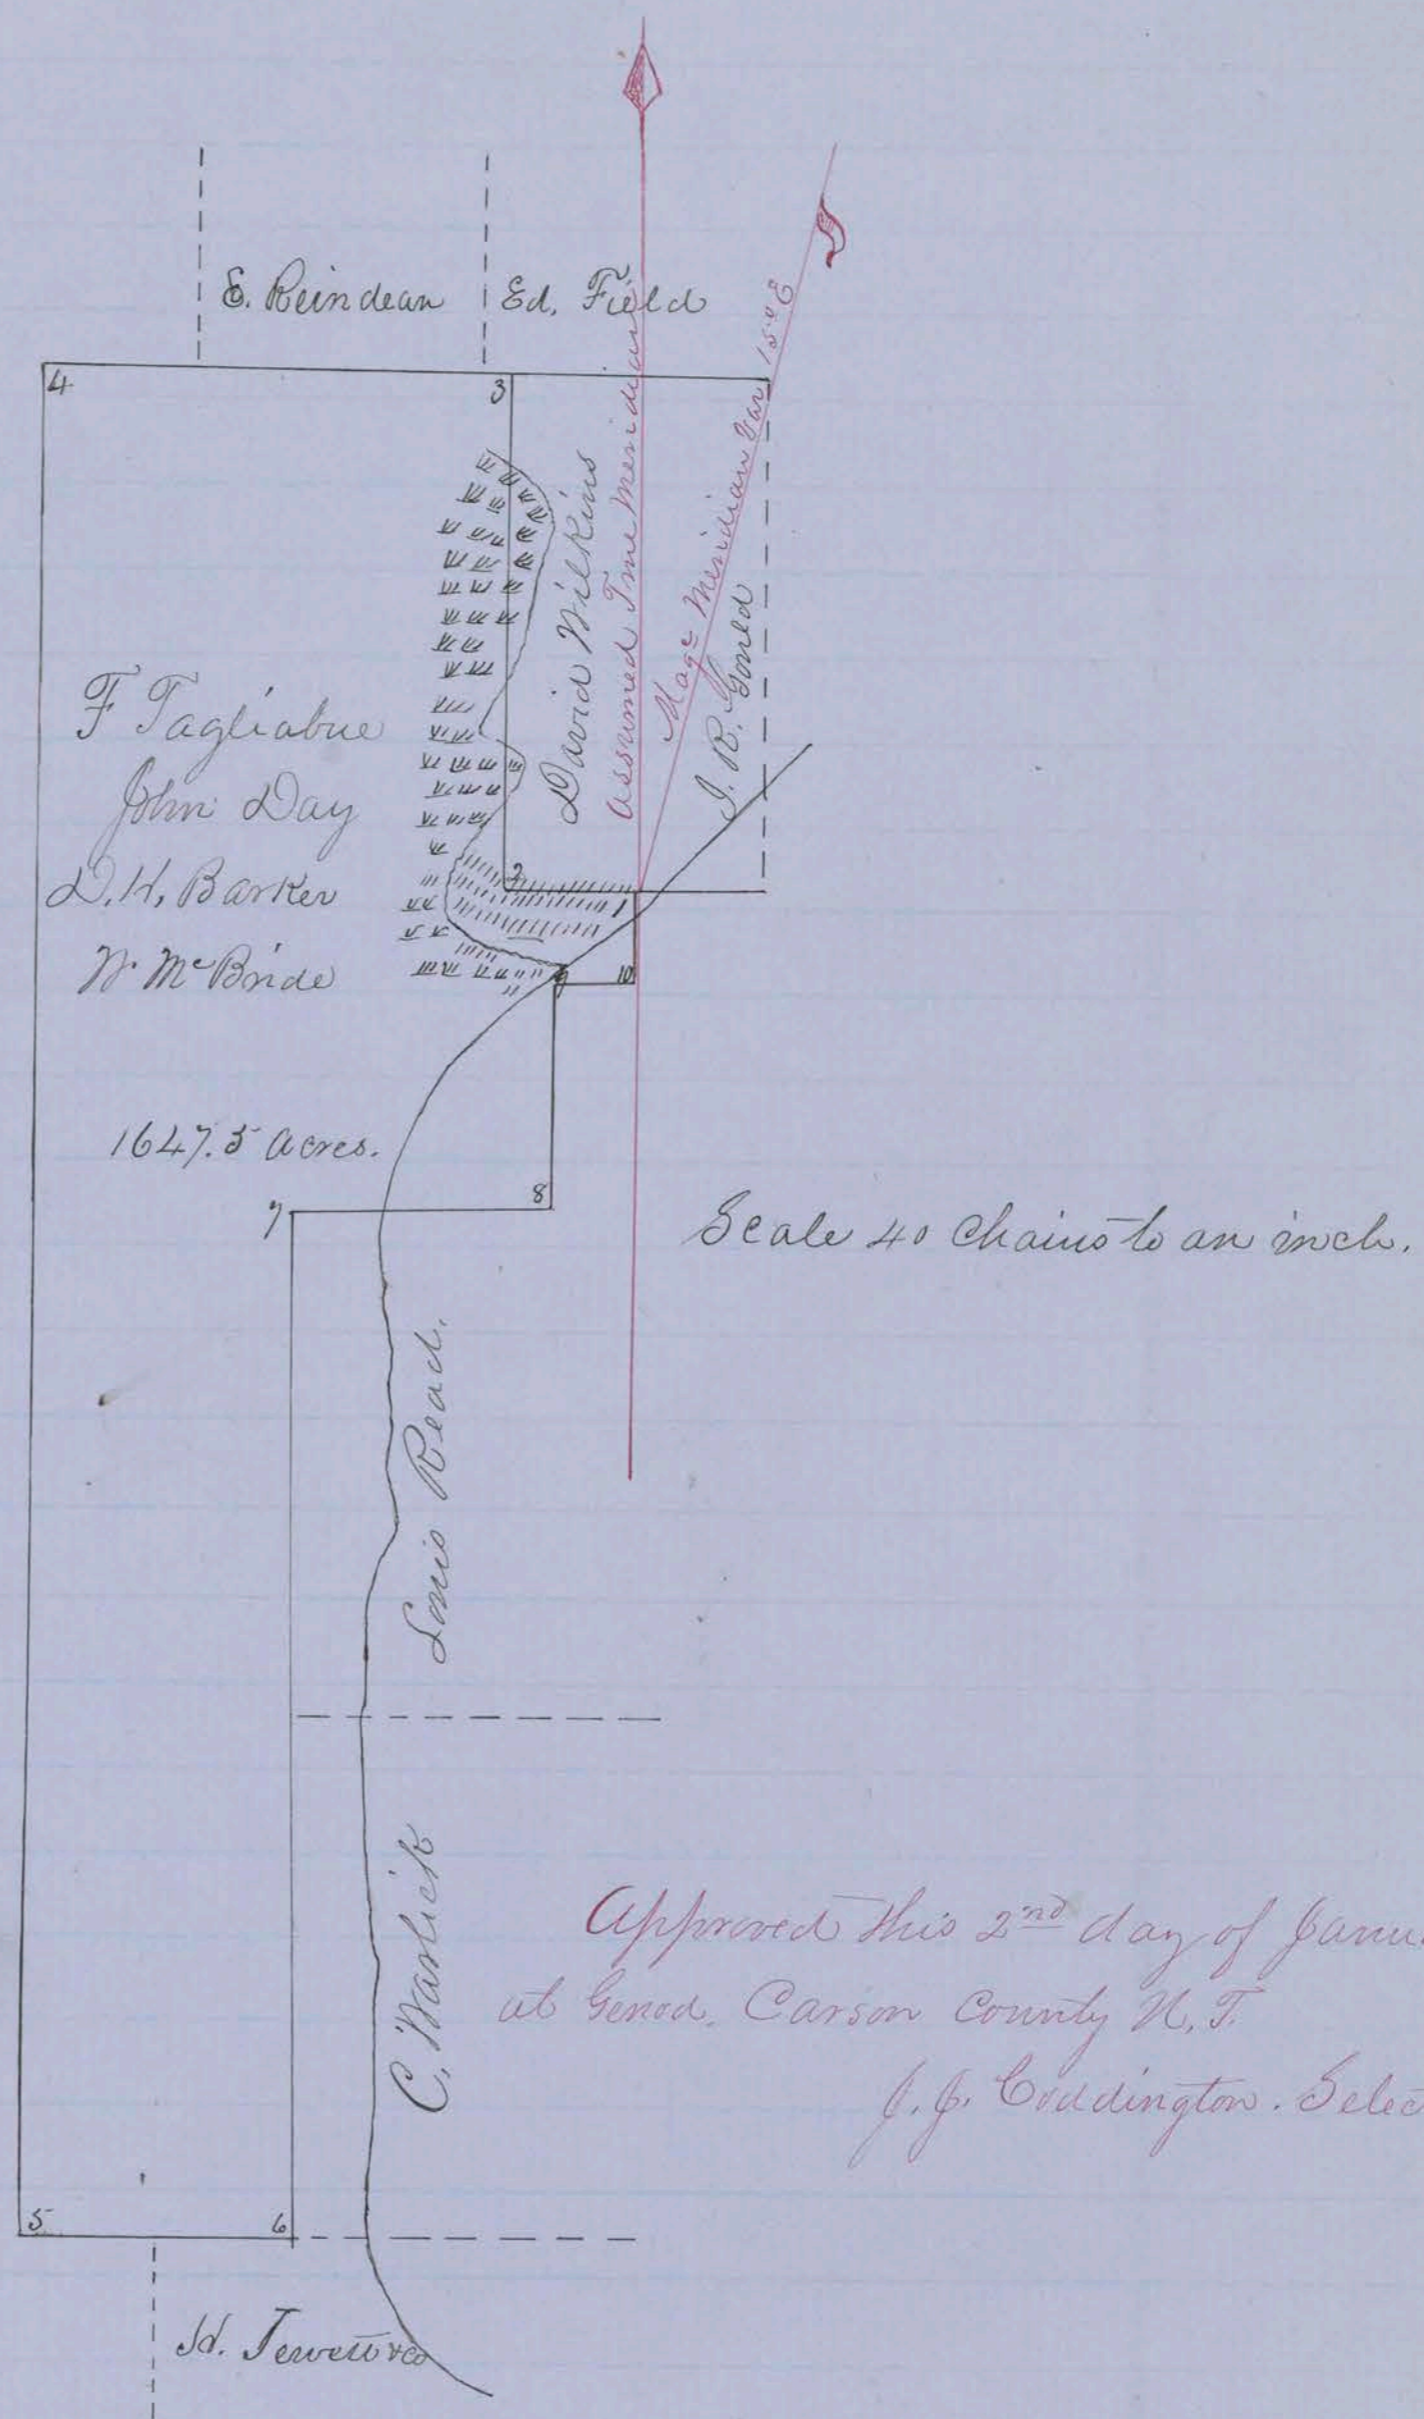 E. Reindean
Ed. Field
4
3
David Wilkins
Assumed True Meridian
Mag<sup>c</sup> Meridian Var. 15° E
J. R. Gould
F Tagliabue
John Day
D. H. Barker
W. McBride
2
1
9
10
1647.5 Acres.
7
8
Scale 40 Chains to an inch.
Louis Read.
C. Warlick
Approved this 2nd day of Janu
at Genoa, Carson County N. T.
J. J. Coddington. Selec
5
6
H.